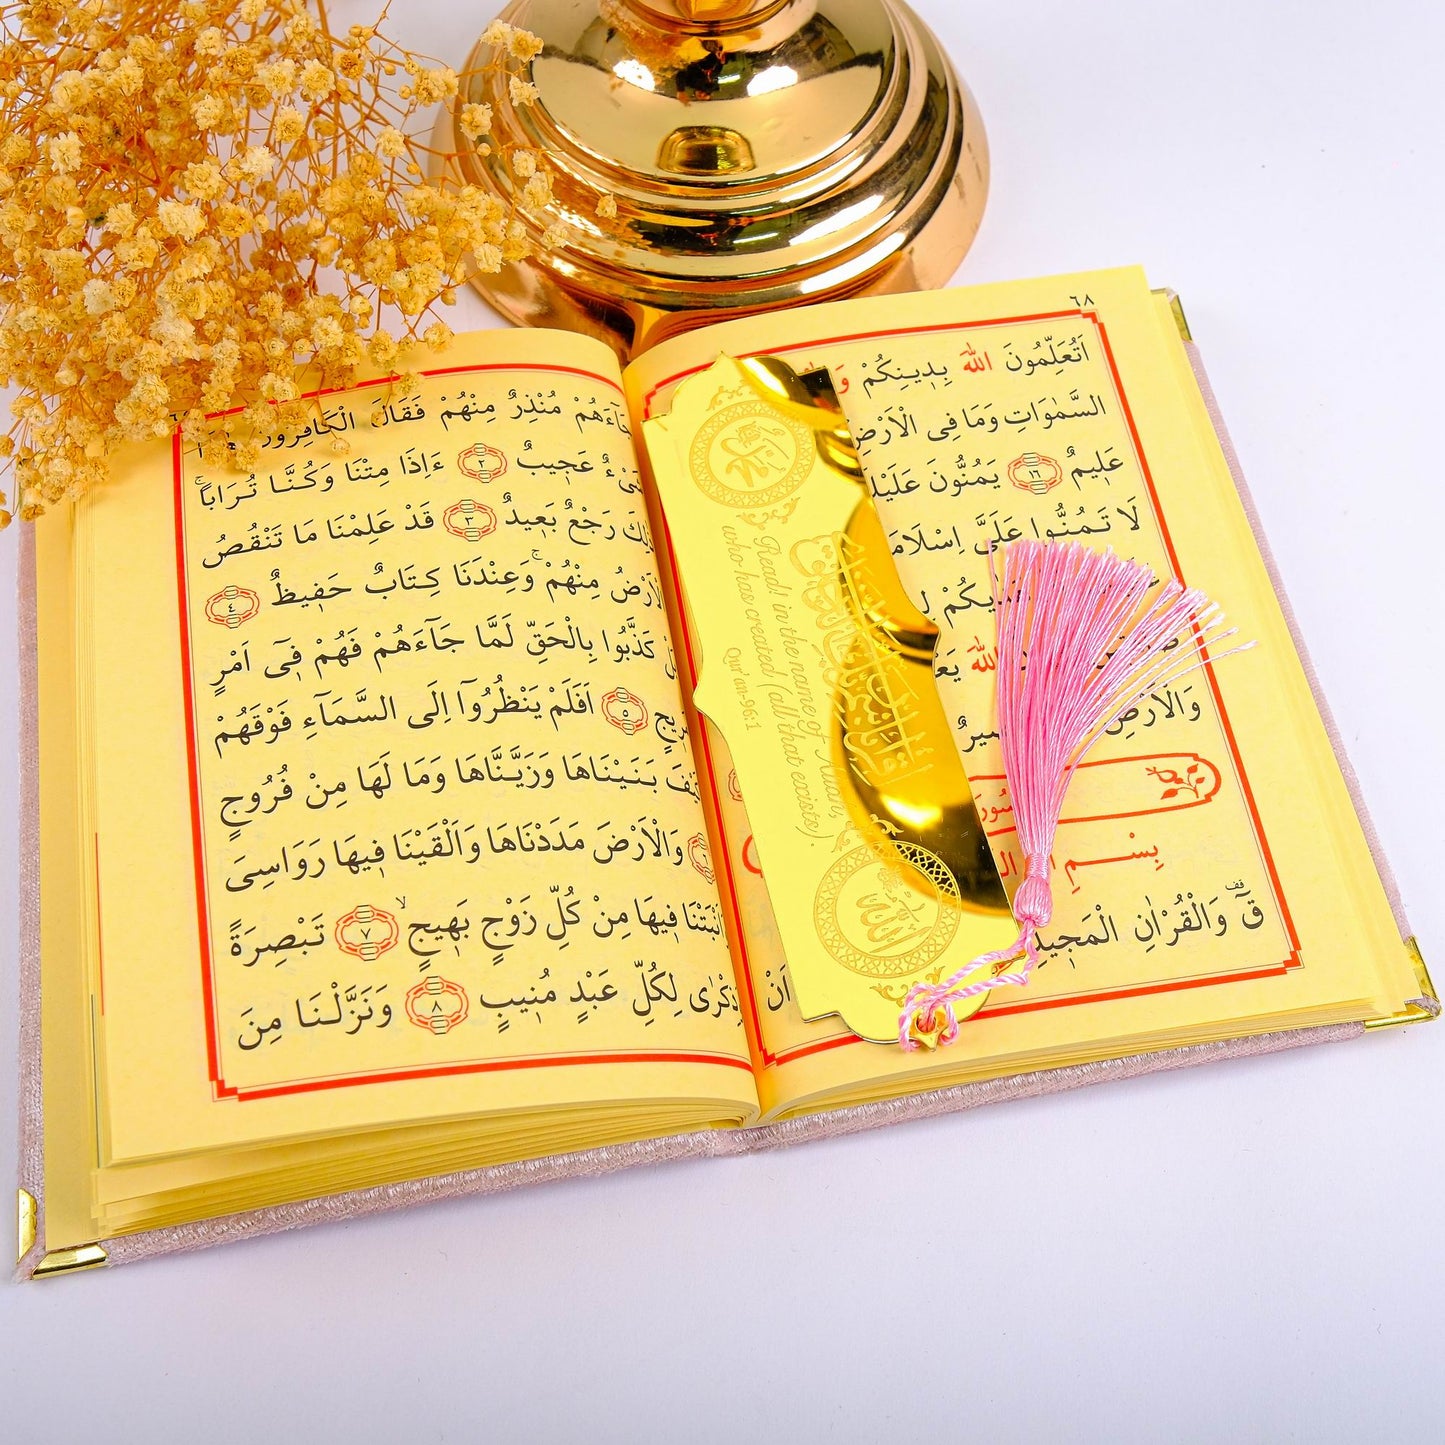 ٦٨
اَتُعَلِّمُونَ اللّٰهَ بِدِينِكُمْ
السَّمٰوَاتِ وَمَا فِي الْاَرْضِ
عَلِيمٌ ﴿١٦﴾ يَمُنُّونَ عَلَيْكَ
لَا تَمُنُّوا عَلَيَّ اِسْلَامَ
اللّٰهَ
وَالْاَرْضِ
بِسْمِ
قٓ وَالْقُرْاٰنِ الْمَجِيدِ
اَنْ
جَٓاءَهُمْ مُنْذِرٌ مِنْهُمْ فَقَالَ الْكَافِرُونَ هٰذَا
شَيْءٌ عَجِيبٌ ﴿٢﴾ ءَاِذَا مِتْنَا وَكُنَّا تُرَابًاۚ
ذٰلِكَ رَجْعٌ بَعِيدٌ ﴿٣﴾ قَدْ عَلِمْنَا مَا تَنْقُصُ
الْاَرْضُ مِنْهُمْۚ وَعِنْدَنَا كِتَابٌ حَفِيظٌ ﴿٤﴾
بَلْ كَذَّبُوا بِالْحَقِّ لَمَّا جَٓاءَهُمْ فَهُمْ فِٓي اَمْرٍ
مَرِيجٍ ﴿٥﴾ اَفَلَمْ يَنْظُرُٓوا اِلَى السَّمَٓاءِ فَوْقَهُمْ
كَيْفَ بَنَيْنَاهَا وَزَيَّنَّاهَا وَمَا لَهَا مِنْ فُرُوجٍ
﴿٦﴾ وَالْاَرْضَ مَدَدْنَاهَا وَاَلْقَيْنَا فِيهَا رَوَاسِيَ
وَاَنْبَتْنَا فِيهَا مِنْ كُلِّ زَوْجٍ بَهِيجٍۙ ﴿٧﴾ تَبْصِرَةً
وَذِكْرٰى لِكُلِّ عَبْدٍ مُنِيبٍ ﴿٨﴾ وَنَزَّلْنَا مِنَ
محمد
Read! in the name of Allah,
who has created (all that exists).
Qur'an-96:1
الله